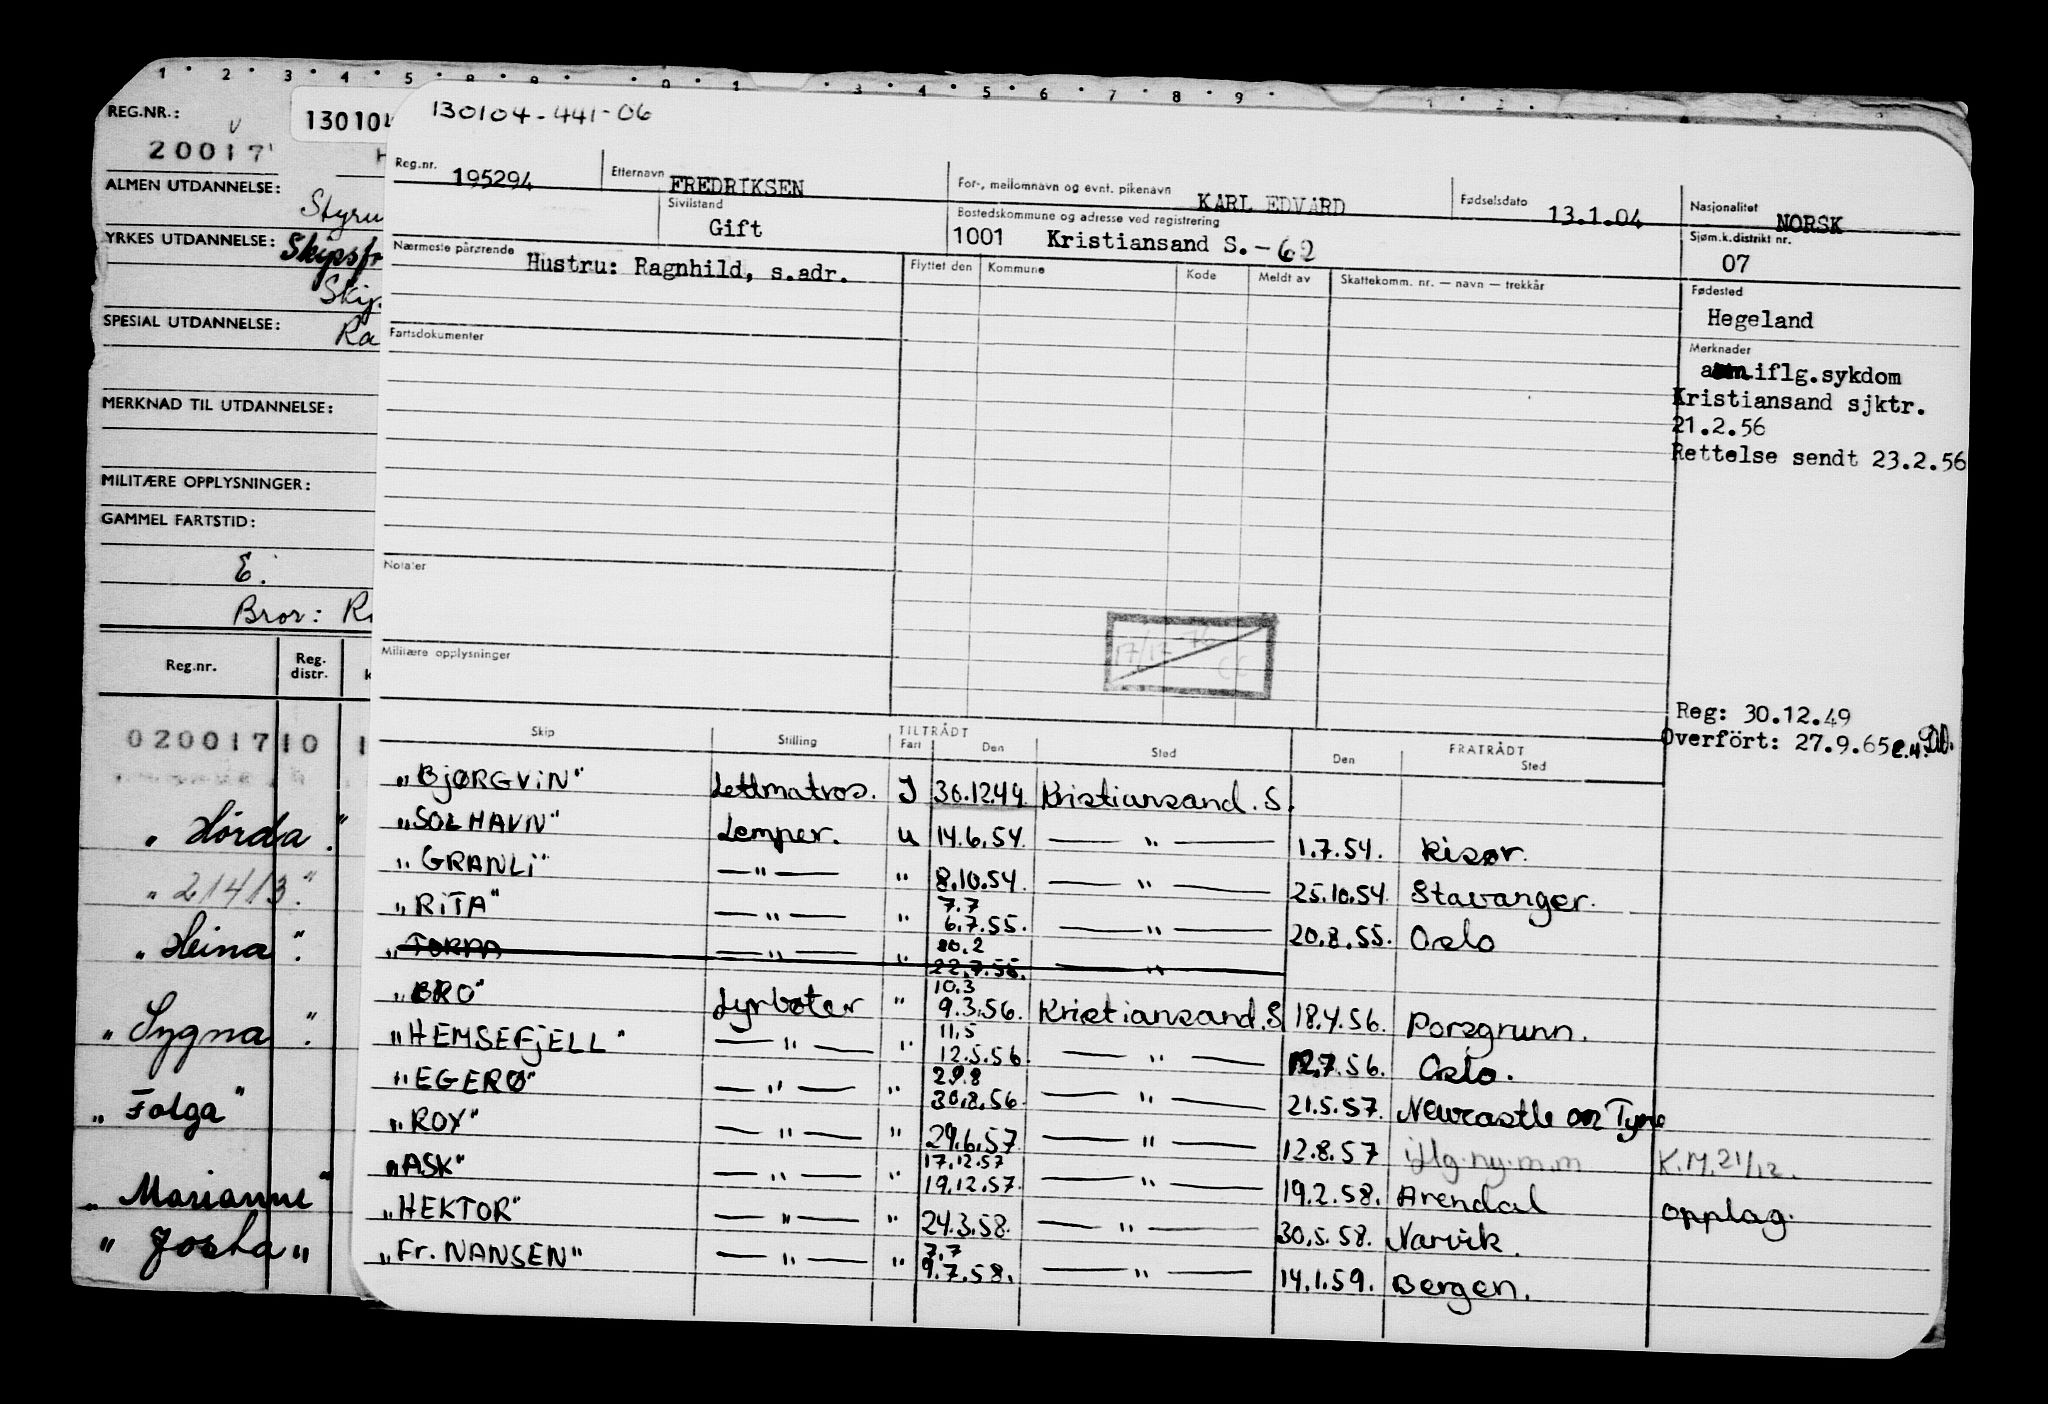 1 · 2 · 3 · 4 · 5
3 · 4 · 5 · 6 · 7 · 8 · 9 ·
REG.NR.:
20017
130104
ALMEN UTDANNELSE:
YRKES UTDANNELSE:
SPESIAL UTDANNELSE:
MERKNAD TIL UTDANNELSE:
MILITÆRE OPPLYSNINGER:
GAMMEL FARTSTID:
E.
Bror:
Reg.nr. Reg. distr.
02001710 1
"Hörda".
"214/3."
"Heina".
"Sygna".
"Folga"
"Marianne"
"Josta"
130104-441-06
Reg.nr. 195294 Etternavn FREDRIKSEN For-, mellomnavn og evnt. pikenavn KARL EDVARD Fødselsdato 13.1.04 Nasjonalitet NORSK
Sivilstand Gift Bostedskommune og adresse ved registrering 1001 Kristiansand S.-62 Sjøm.k.distrikt nr. 07
Nærmeste pårørende Hustru: Ragnhild, s.adr. Flyttet den Kommune Kode Meldt av Skattekomm. nr. — navn — trekkår
Fødested
Hegeland
Fartsdokumenter
Merknader
iflg.sykdom
Kristiansand sjktr.
21.2.56
Rettelse sendt 23.2.56
Notater
17/12
Militære opplysninger
Reg: 30.12.49
Overført: 27.9.65
Skip Stilling TILTRÅDT Fart Den Sted FRATRÅDT Den Sted
"BJØRGVIN" Lettmatros. I 30.12.44. Kristiansand. S.
"SOLHAVN" Lemper. u 14.6.54. — " — 1.7.54. Risør.
"GRANLI" — " — " 8.10.54. — " — 25.10.54. Stavanger.
7.7
"RITA" — " — " 6.7.55. — " — 20.8.55. Oslo
20.2
"TORPA — " — " 22.7.55. — " —
10.3
"BRO" Fyrbøter " 9.3.56. Kristiansand.S 18.4.56. Porsgrunn.
11.5
"HEMSEFJELL" — " — " 12.5.56. — " — 12.7.56. Oslo.
29.8
"EGERØ" — " — " 30.8.56. — " — 21.5.57. Newcastle on Tyne
"ROY" — " — " 29.6.57. — " — 12.8.57 iflg. ny. m.m K.M. 21/12.
17.12.57
"ASK" — " — " 19.12.57. — " — 19.2.58. Arendal opplag.
"HEKTOR" — " — " 24.3.58. — " — 30.5.58. Narvik.
7.7
"Fr. NANSEN" — " — " 9.7.58. — " — 14.1.59. Bergen.